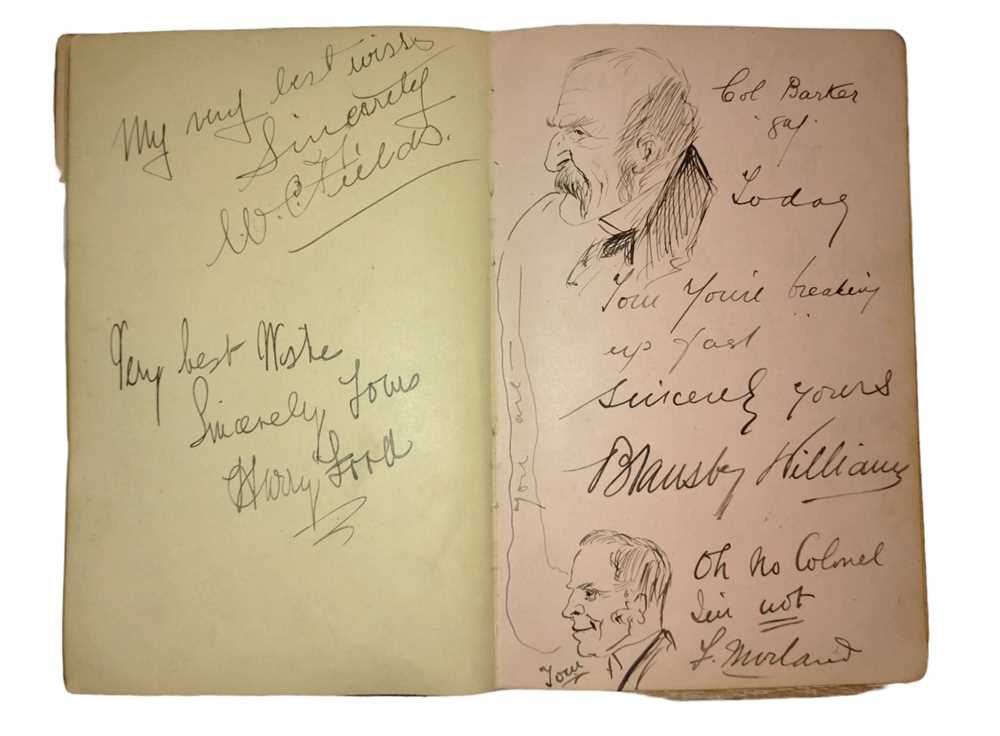 My very best wishes
Sincerely
W.C. Fields.
Very best Wishe
Sincerely Yours
Harry Ford
Col Barker
Today
Tom You're breaking
up fast
Sincerely yours
Bransby Williams
you are
Oh No Colonel
I'm not
Morland
Tom